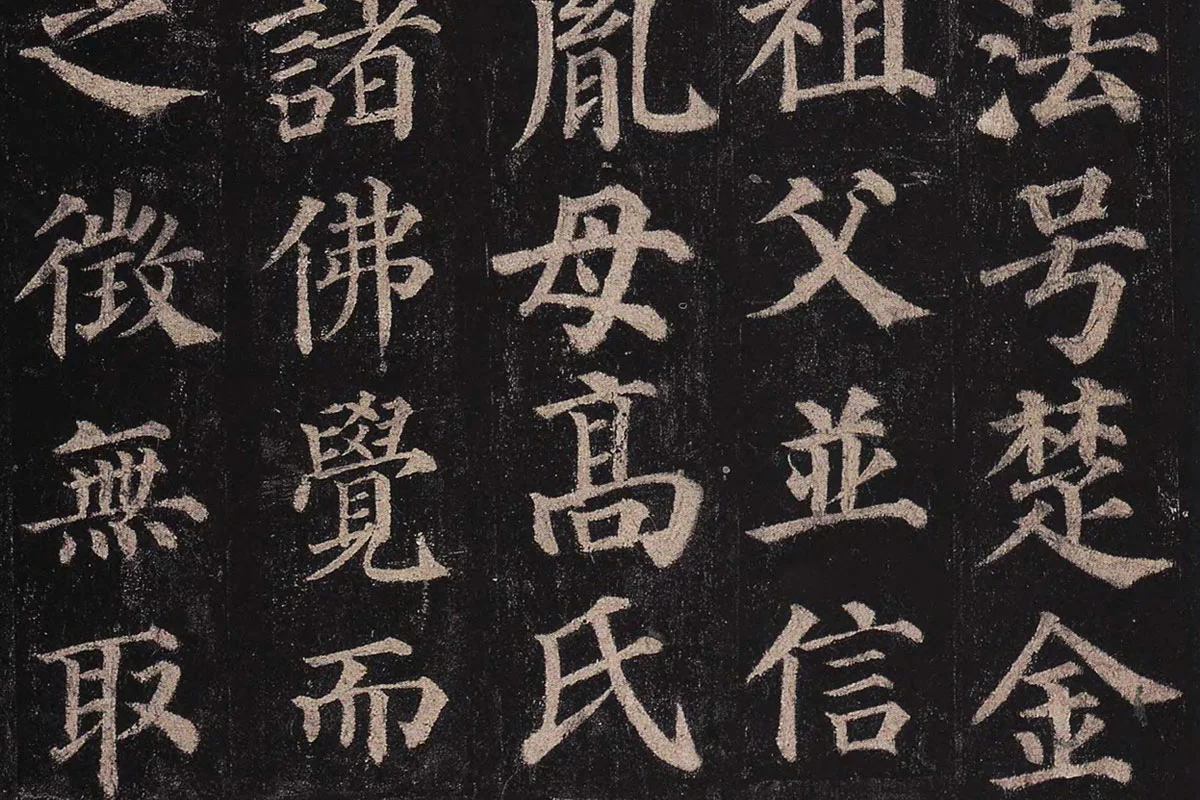 法号楚金
祖父並信
胤母髙氏
諸佛覺而
之徵無取